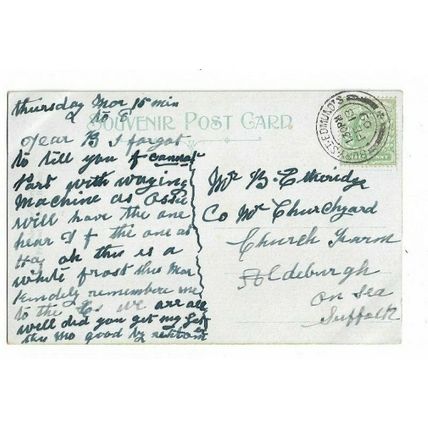 Thursday Mor 15 min
to 8
SOUVENIR POST CARD
Dear B I forgot
to tell you I cannot
Part with waying
Machine as Ostie
will have the one
hear If the one at
Hay ok this is a
white frost this Mor
Kindely remembere me
to the we are all
well did you get my
this mo good by
Mr B Etheridge
Co Mr Churchyard
Church Farm
Aldeburgh
on Sea
Suffolk
BURY ST EDMUNDS